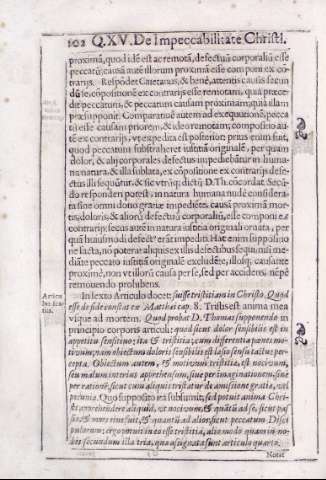 102 Q.XV. De Impeccabilitate Christi.
proximâ, quod idẽ est ac remotâ, defectuũ corporaliũ esse
peccatũ; causâ autẽ illorum proximâ esse compóni ex cõ-
trarijs. Respõdet Caietanus, & benè, attentis causis secun
dũ se, cõpositionẽ ex contrarijs esse remotam, quia præce-
dit peccatum, & peccatum causam proximam, quia illam
præsupponit. Comparatione autem ad exequutionẽ, pecca
tũ esse causam priorem, & ideo remotam; compositio aũ-
tẽ ex contrarijs, vt expedita est posterior: prius enim fuit,
quod peccatum substraheret iustitiã originalẽ, per quam
dolor, & alij corporales defectus impediebãtur in huma
na natura, & illa sublata, ex cõpositione ex contrarijs defe-
ctus illi sequũtur, & sic vtrũq; dictũ D. Th. cõcordat. Secũ-
dò responderi potest, in natura humana nudè considera-
ta sine omni dono gratiæ impediẽte, causã proximã mor-
tis, doloris, & aliorũ defectuũ corporaliũ, esse componi ex cõ
trarijs; secus autẽ in natura iustitia originali ornata, per
quã huiusmodi defectꝰ erãt impediti. Hac enim suppositio
ne facta, nõ poterat aliquis ex illis defectibus sequi, nisi me-
diãte peccato iustitiã originalẽ excludẽte, illosq; causante
proximè, non vt illorũ causa per se, sed per accidens; nẽpè
removendo prohibens.
Articu
lus sex-
tus.
In sexto Articulo docet; fuisse tristitiam in Christo. Quod
esse de fide constat ex Matthæi cap. 8. Tristis est anima mea
vsque ad mortem. Quod probat D. Thomas supponendo in
principio corporis articuli: quod sicut dolor sensibilis est in
appetitu sensitiuo; ita & tristitia; cum differentia penes mo-
tiuum; nam obiectum doloris sensibilis est læsio sensu tactus per-
cepta. Obiectum autem, & motiuum tristitiæ, est nociuum,
seu malum interiùs apprehensum, siue per imaginationem, siue
per rationẽ; sicut cum aliquis tristatur de amissione gratiæ, vel
pecuniæ. Quo supposito ita subsumit; sed potuit anima Chri-
sti apprehendere aliquid, vt nociuum, & quãtũ ad se, sicut pas
sio, & mors eius fuit, & quantũ ad alios, sicut peccatum Disci
pulorum; ergo potuit in eo esse tristitia, alio modo quam in no-
bis secundum illa tria, quæ assignata sunt articulo quarto.
Notat